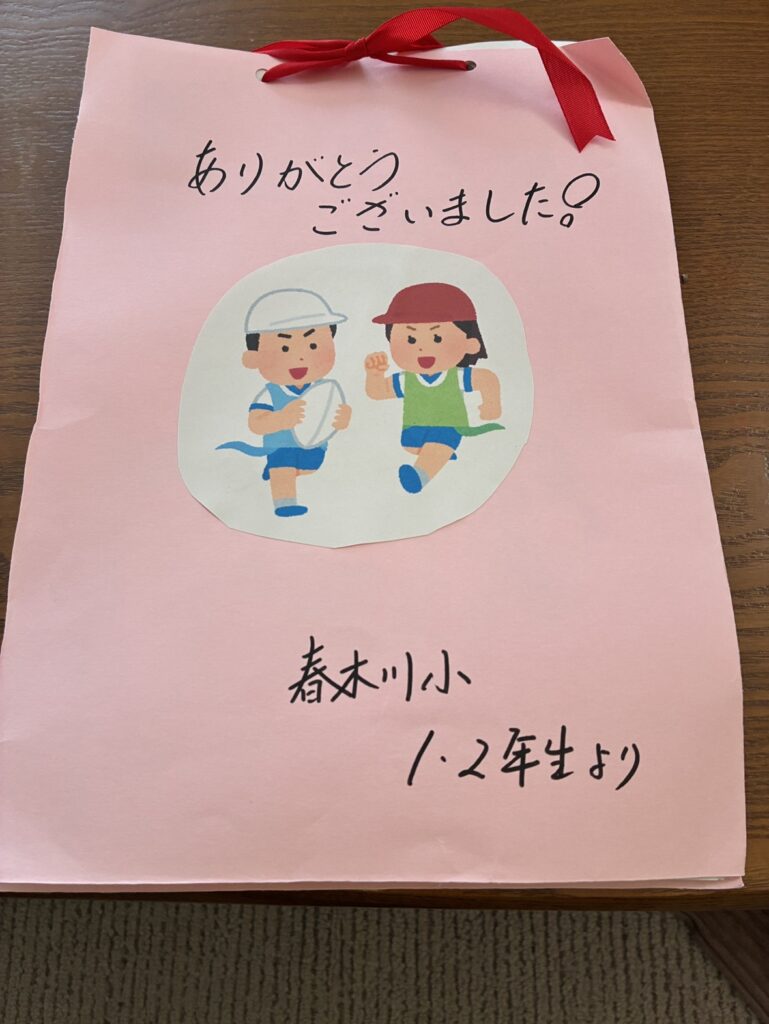 ありがとう
ございました!
春木川小
1・2年生より